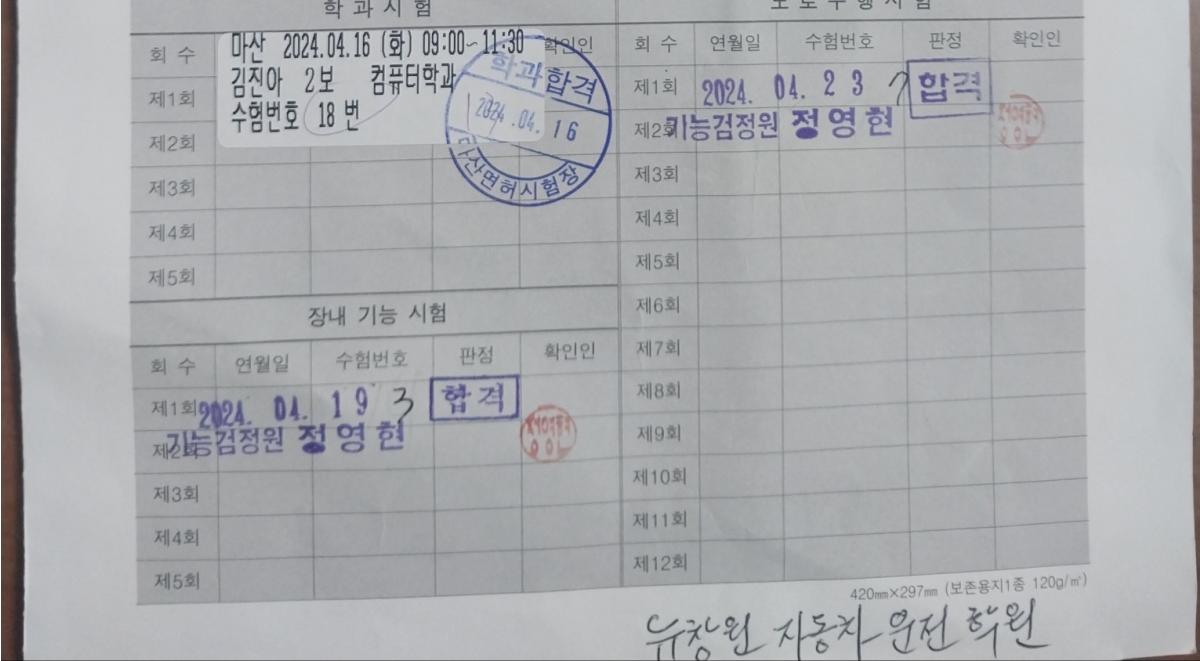 학과시험
회 수 확인인
마산 2024.04.16 (화) 09:00~11:30
김진아 2보 컴퓨터학과
수험번호 18 번
학과합격
2024.04.16
마산면허시험장
제1회
제2회
제3회
제4회
제5회
장내 기능 시험
회 수 연월일 수험번호 판정 확인인
제1회 2024. 04. 19 3 합격
제2회 기능검정원 정영현
제3회
제4회
제5회
도로주행시험
회 수 연월일 수험번호 판정 확인인
제1회 2024. 04. 23 7 합격
제2회 기능검정원 정영현
제3회
제4회
제5회
제6회
제7회
제8회
제9회
제10회
제11회
제12회
420㎜×297㎜ (보존용지1종 120g/㎡)
뉴창원 자동차 운전 학원